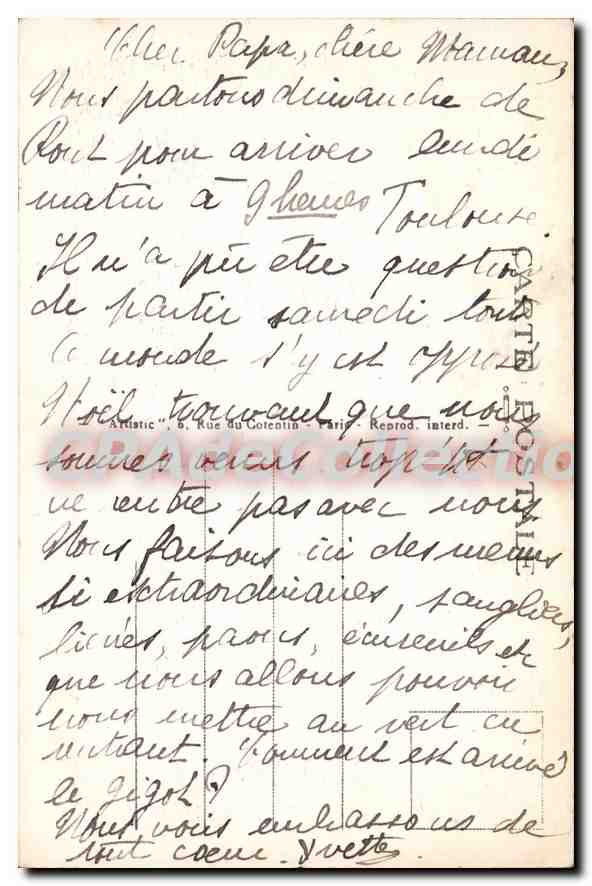 Cher Papa, chère Maman,
Nous partons dimanche de
pour arriver lundi
matin à 9 heures Toulouse.
Il n'a pu être question
de partir samedi tout
le monde s'y est opposé
Noël trouvant que nous
"Artistic", 6, Rue du Cotentin - Paris - Reprod. interd. -
sommes venus trop tôt
ne rentre pas avec nous
Nous faisons ici des menus
si extraordinaires, sangliers,
lièvres, paons, écureuils et
que nous allons pouvoir
nous mettre au vert en
rentrant. Comment est arrivé
le gigot?
Nous vous embrassons de
tout cœur. Yvette
CARTE POSTALE
CPADeCollection